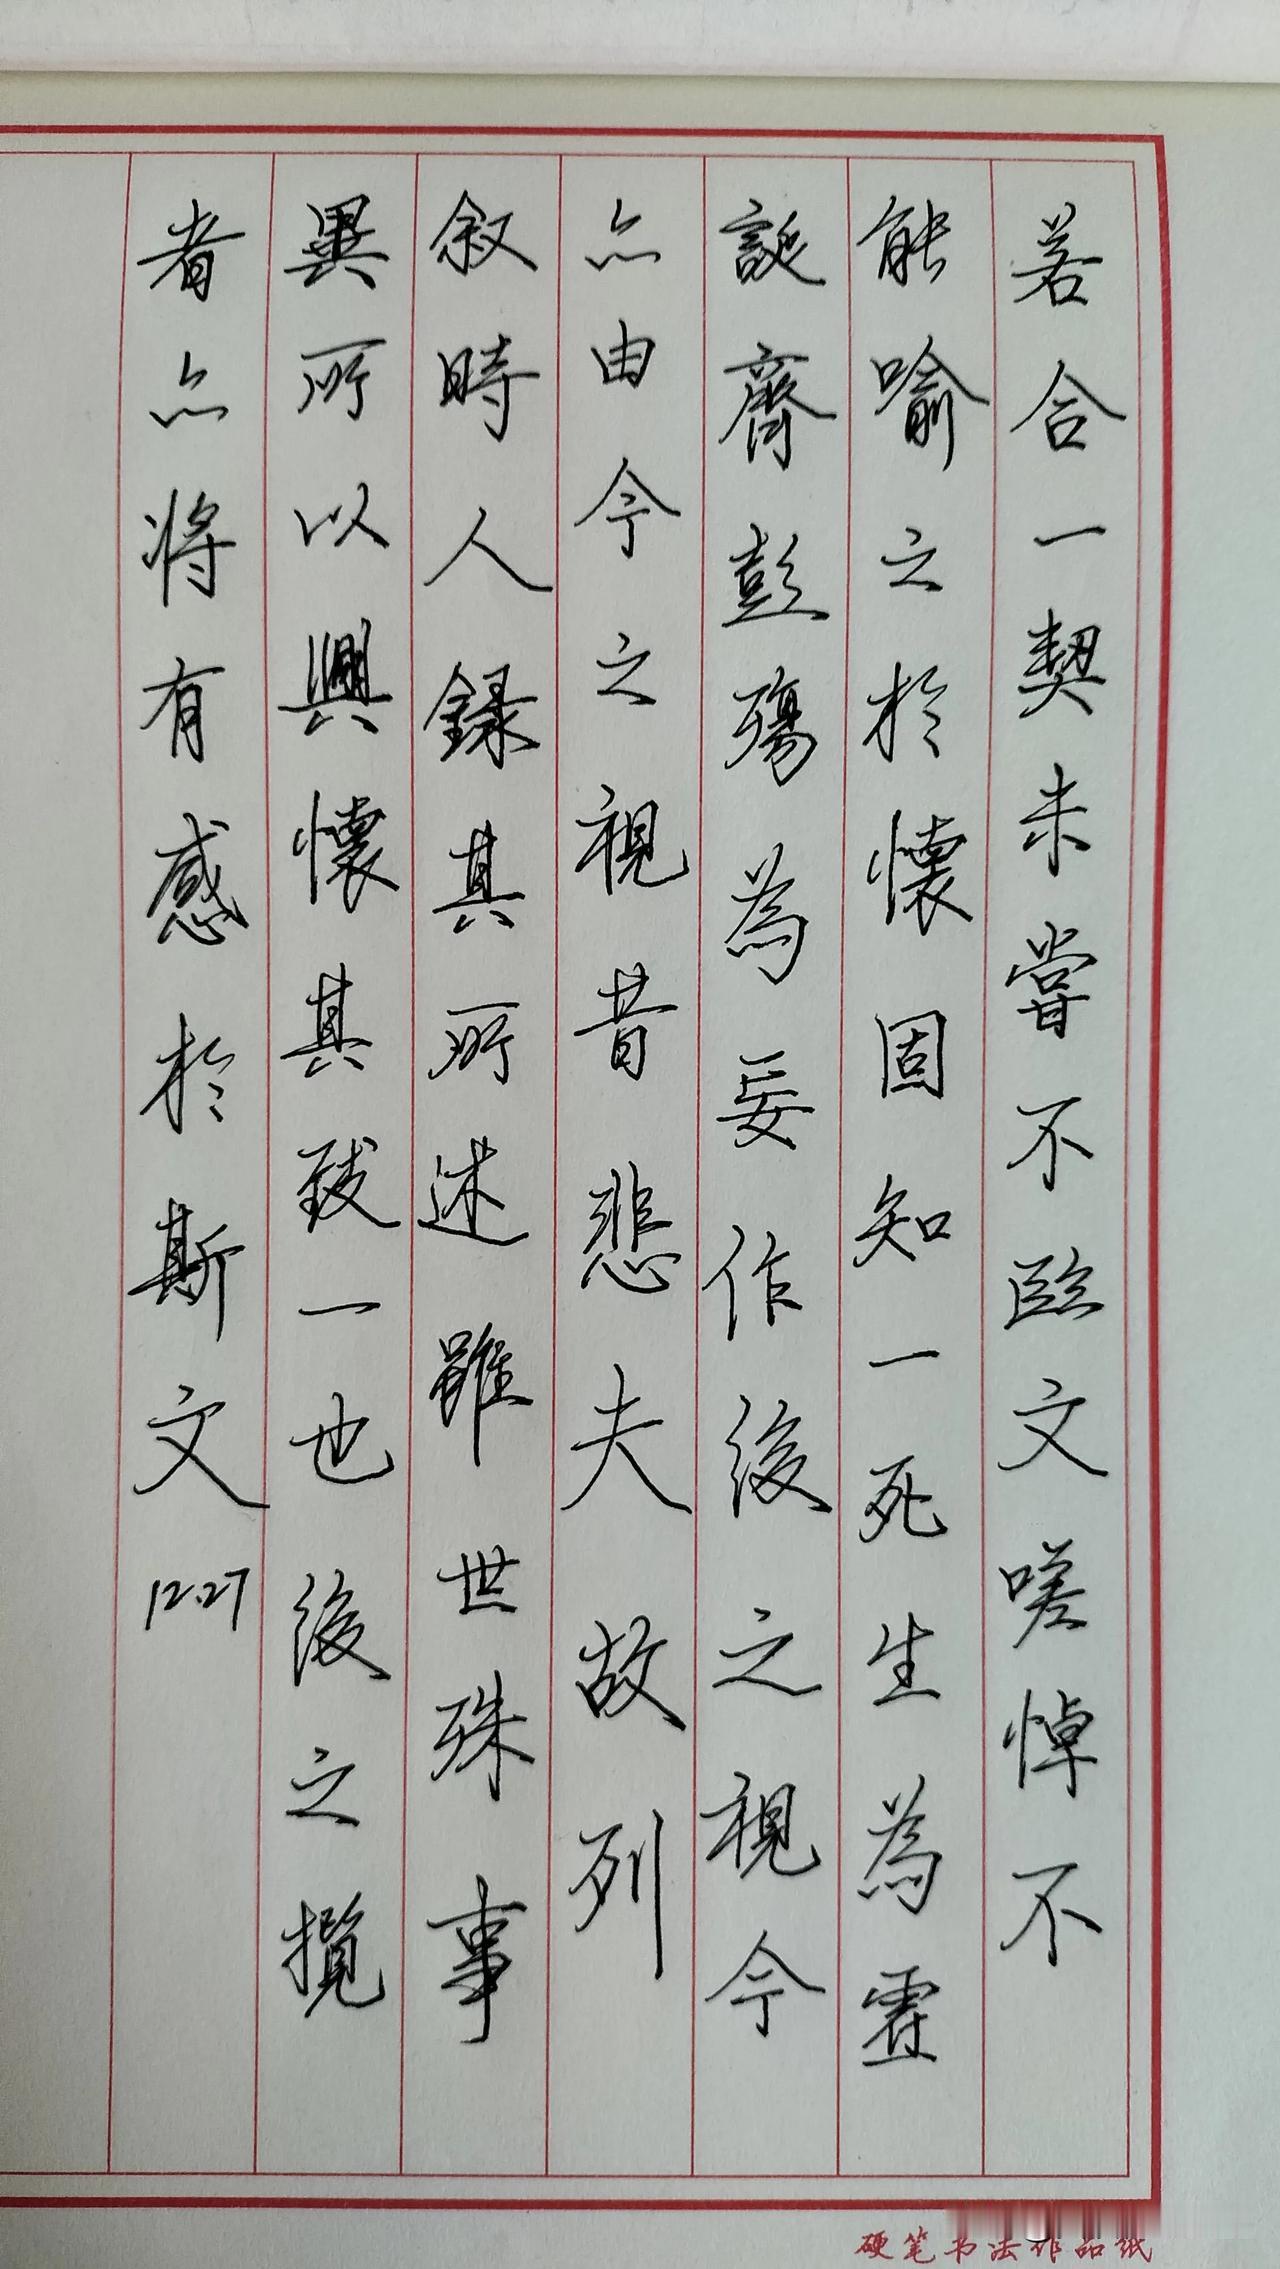 若合一契未嘗不臨文嗟悼不
能喻之於懷固知一死生為虛
誕齊彭殤為妄作後之視今
亦由今之視昔悲夫故列
叙時人錄其所述雖世殊事
異所以興懷其致一也後之攬
者亦將有感於斯文 12.27
硬笔书法作品纸